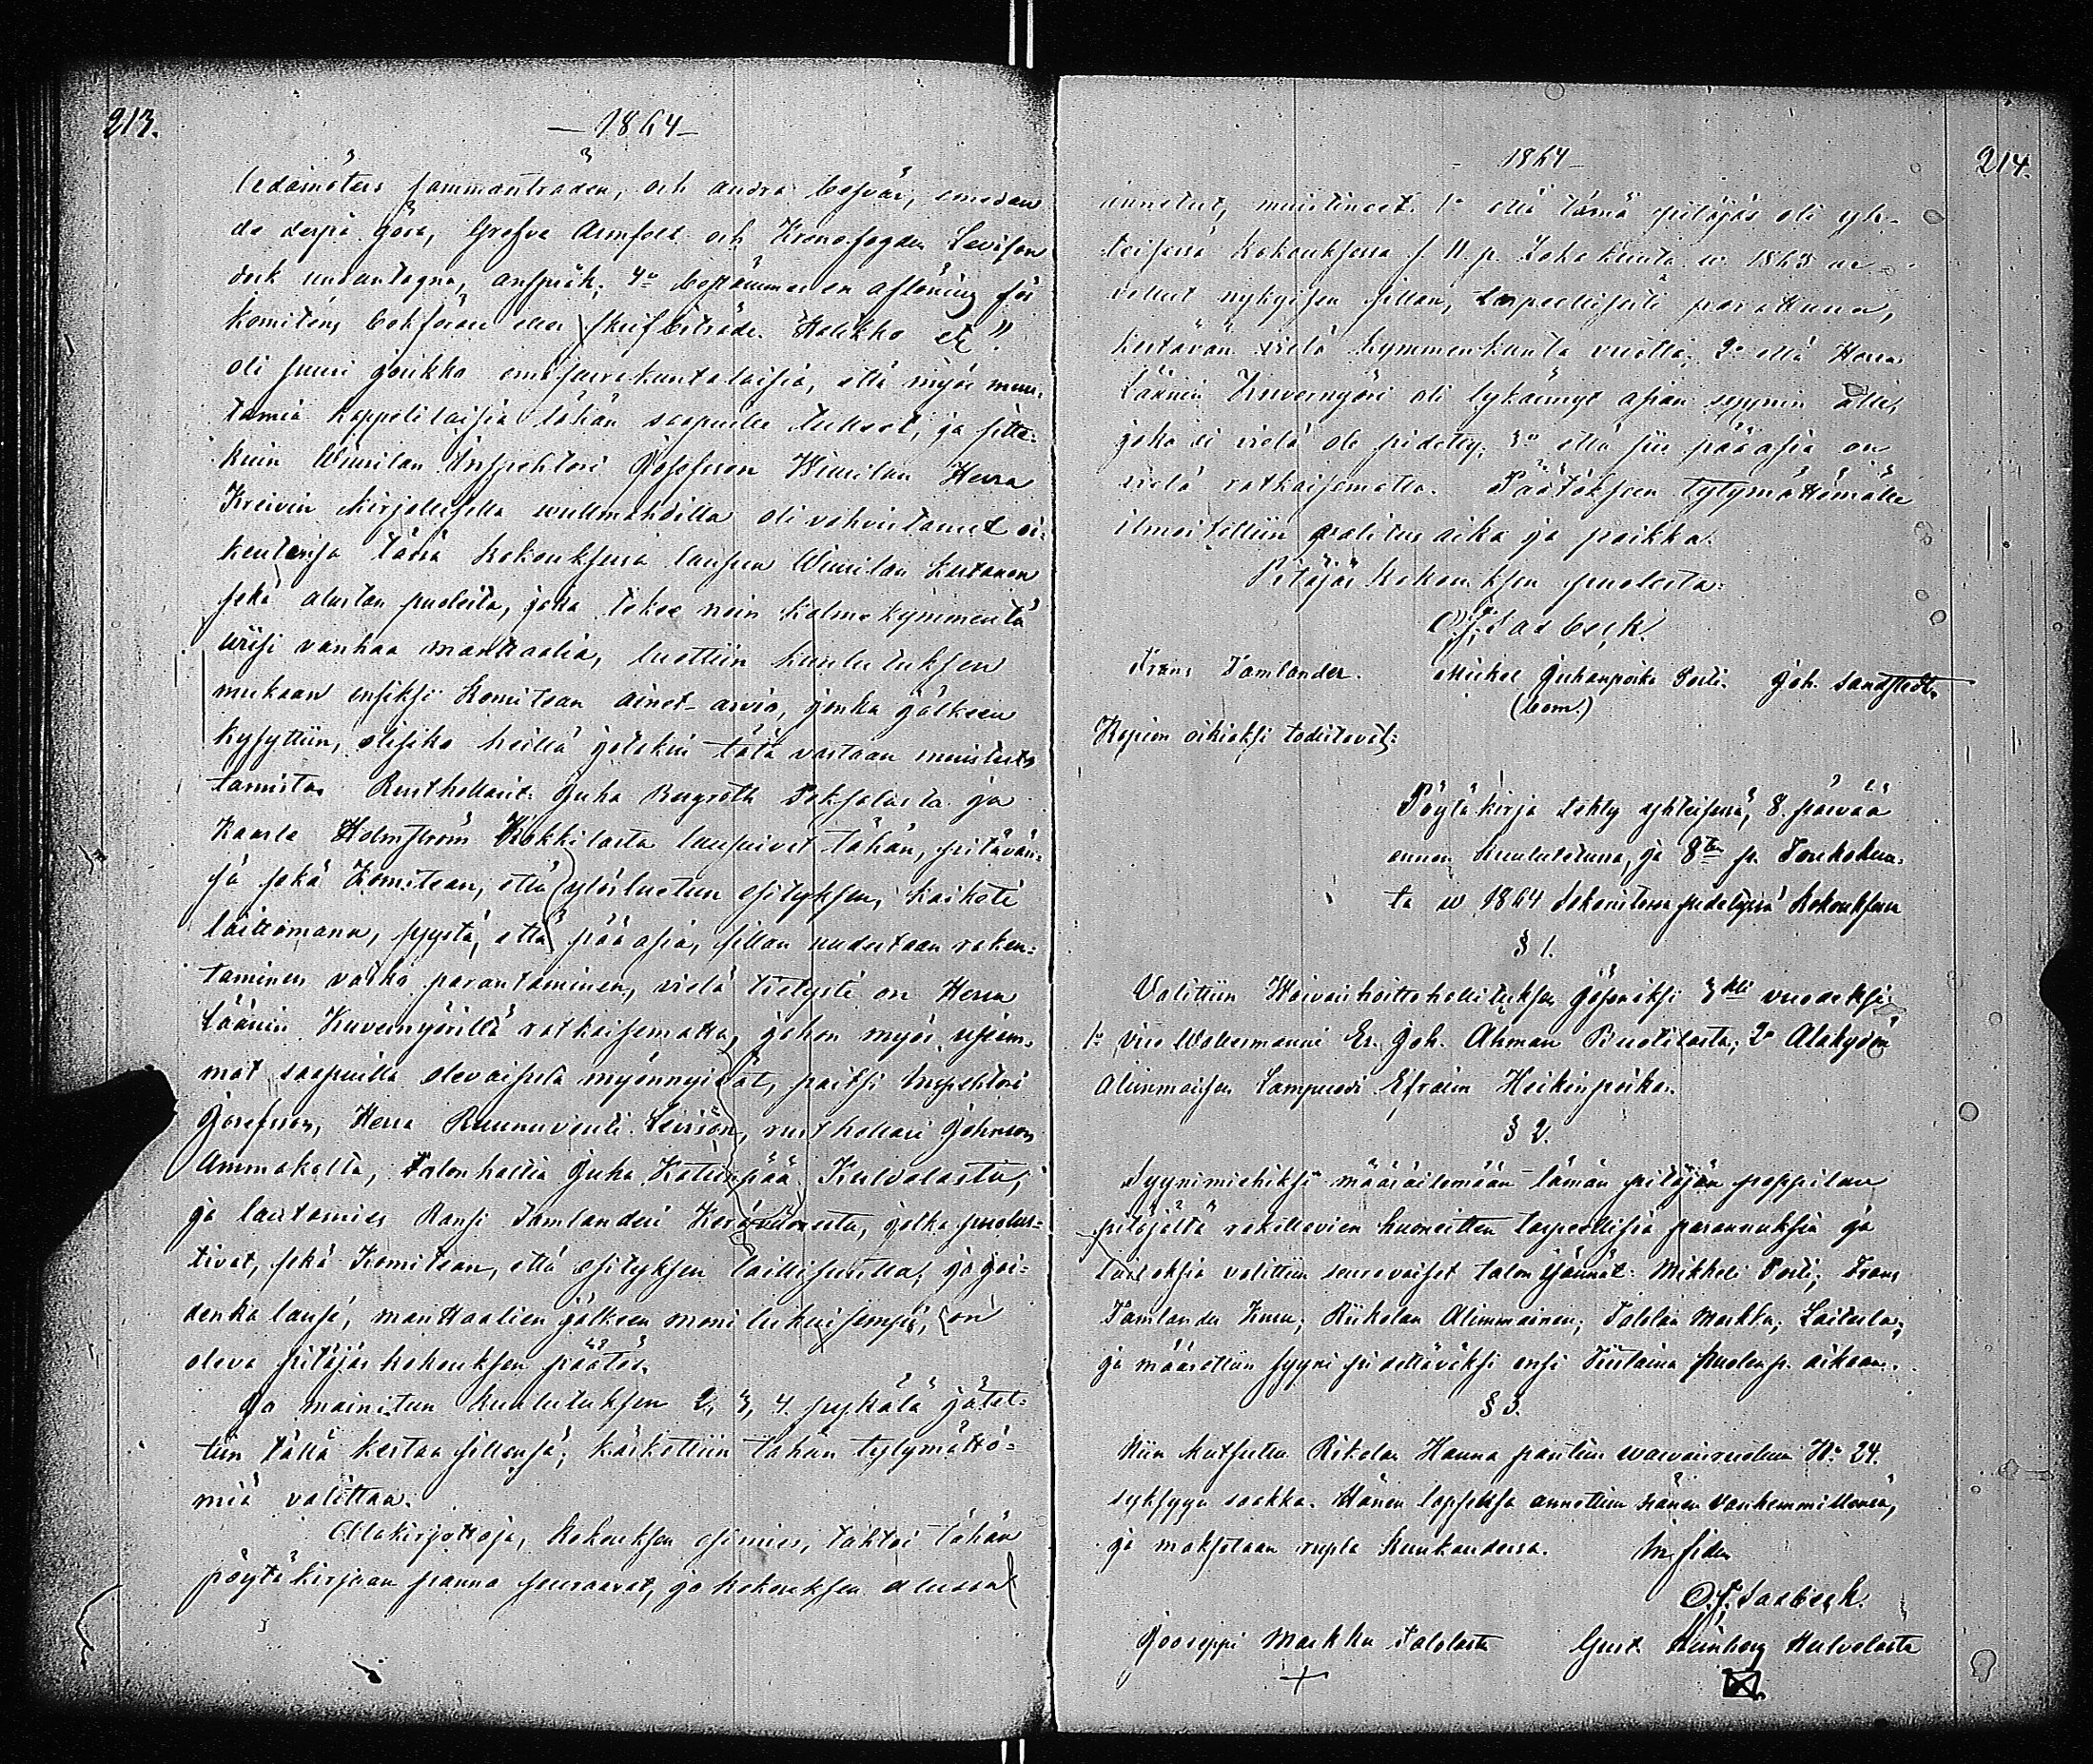 213.
— 1864 —
ledamöters sammanträden, och andra besvär, emedan
de derpå göra, Grefve Armfelt och Kronofogden Levison
dock undantagna, anspråk; 4o bestämmes en aflöning för
komiténs bokförare eller skrifbiträde. Halikko etc"
oli suuri joukko emäseurakuntalaisia, että myös muu-
tamia kappelilaisia tähän saapuille tulleet, ja sitte-
kuin Wiurilan Inspehtori Josefsson Wiurilan Herra
Kreivin kirjallisella wallmahdilla oli vahvistanut oi-
keutensa tässä kokouksessa lausua Wiurilan kartanon
sekä alustan puolesta, joka tekee noin kolmekymmentä
wiisi vanhaa manttaalia, luettiin kuulutuksen
mukaan ensiksi Komitean ainet-arvio, jonka jälkeen
kysyttiin, olisiko heillä jotakin tätä vastaan muistut-
tamista. Rusthollarit: Juha Bergroth Toksalasta ja
Kaarle Holmström Kokkilasta lausuivat tähän, pitävän-
sä sekä Komitean, että ylösluetun esityksen, kaiketi
laittomana, syystä, että pääasia, sillan uudestaan raken-
taminen vaiko parantaminen, vielä tietysti on Herra
Läänin Kuvernyörillä ratkaisematta, johon myös useim-
mat saapuilla olevaisista myönnyivät, paitsi Inspehtori
Josefsson, Herra Ruunuvouti Levison, rusthollari Johnson
Ammakalta, Talonhaltia Juha Katinpää Kulvalasta,
ja lautamies Ransi Tamlander Keräntöresta, jotka puolus-
tivat, sekä Komitean, että esityksen laillisuutta; ja joi-
denka lause, manttaalien jälkeen moni lukuisempi, on
oleva pitäjäs kokouksen päätös.
Ja mainitun kuulutuksen 2, 3, 4. pykälä jätet-
tiin tällä kertaa sillensä; käskettiin tähän tytymättö-
miä valittaa.
Allakirjottaja, kokouksen esimies, tahtoi tähän
pöytäkirjaan panna seuraavat, jo kokouksen alussa
- 1864 -
214.
annetut, muistineet. 1o että tämä pitäjäs oli yh-
teisessä kokouksessa s. 11. p. Lokakuuta w. 1863 ar-
vellut nykyisen sillan, tarpeellisesti parattuna,
kestävän vielä kymmenkunta vuotta; 2o että Herra
Läänin Kuvernyöri oli lykännyt asian syynin alle,
joka ei vielä ole pidetty; 3o että siis pääasia on
vielä ratkaisematta. Päätökseen tytymättömille
ilmoitettiin valitus aika ja paikka.
Pitäjäs kokouksen puolesta:
O. F. Saxbeck.
Frans Tamlander. Mickel Juhanpoika Posti. Joh. Sandstedt.
(bom.)
Kopian oikiaksi todistavat:
Pöytäkirja tehty yhteisessä, 8. päivää
ennen kuulutetussa, ja 8na p. Toukokuu-
ta w 1864 Sakaristossa pidetyssä kokouksessa
§ 1.
Valittiin Waivaishoitohallituksen jäseniksi 3ksi vuodeksi
1o viro Wolttermanni Er. Joh. Åhman Puotilasta; 2o Alakyöän
Alimmaisen Lampuodi Efraim Heikinpoika.
§ 2.
Syynimiehiksi määräilemään tämän pitäjän pappilan
pitäjältä rakettavien huoneitten tarpeellisia parannuksia ja
laitoksia valittiin seuraavaiset talon isännät: Mikkeli Posti; Frans
Tamlander Kuru; Riikolan Alimmainen; Talolan Markku; Laiterla;
ja määrättiin syyni pidettäväksi ensi Tiistaina puolenp. aikaan.
§ 3.
Niin kutsuttu Rikolan Hanna pantiin waivaisruotuun No 24.
syksyyn saakka. Hänen lapsensa annettiin hänen vanhemmillensa,
ja maksetaan rupla kuukaudessa. In fidem
O. F. Saxbeck.
Jooseppi Markku Talolasta Gust. Hulvolasta